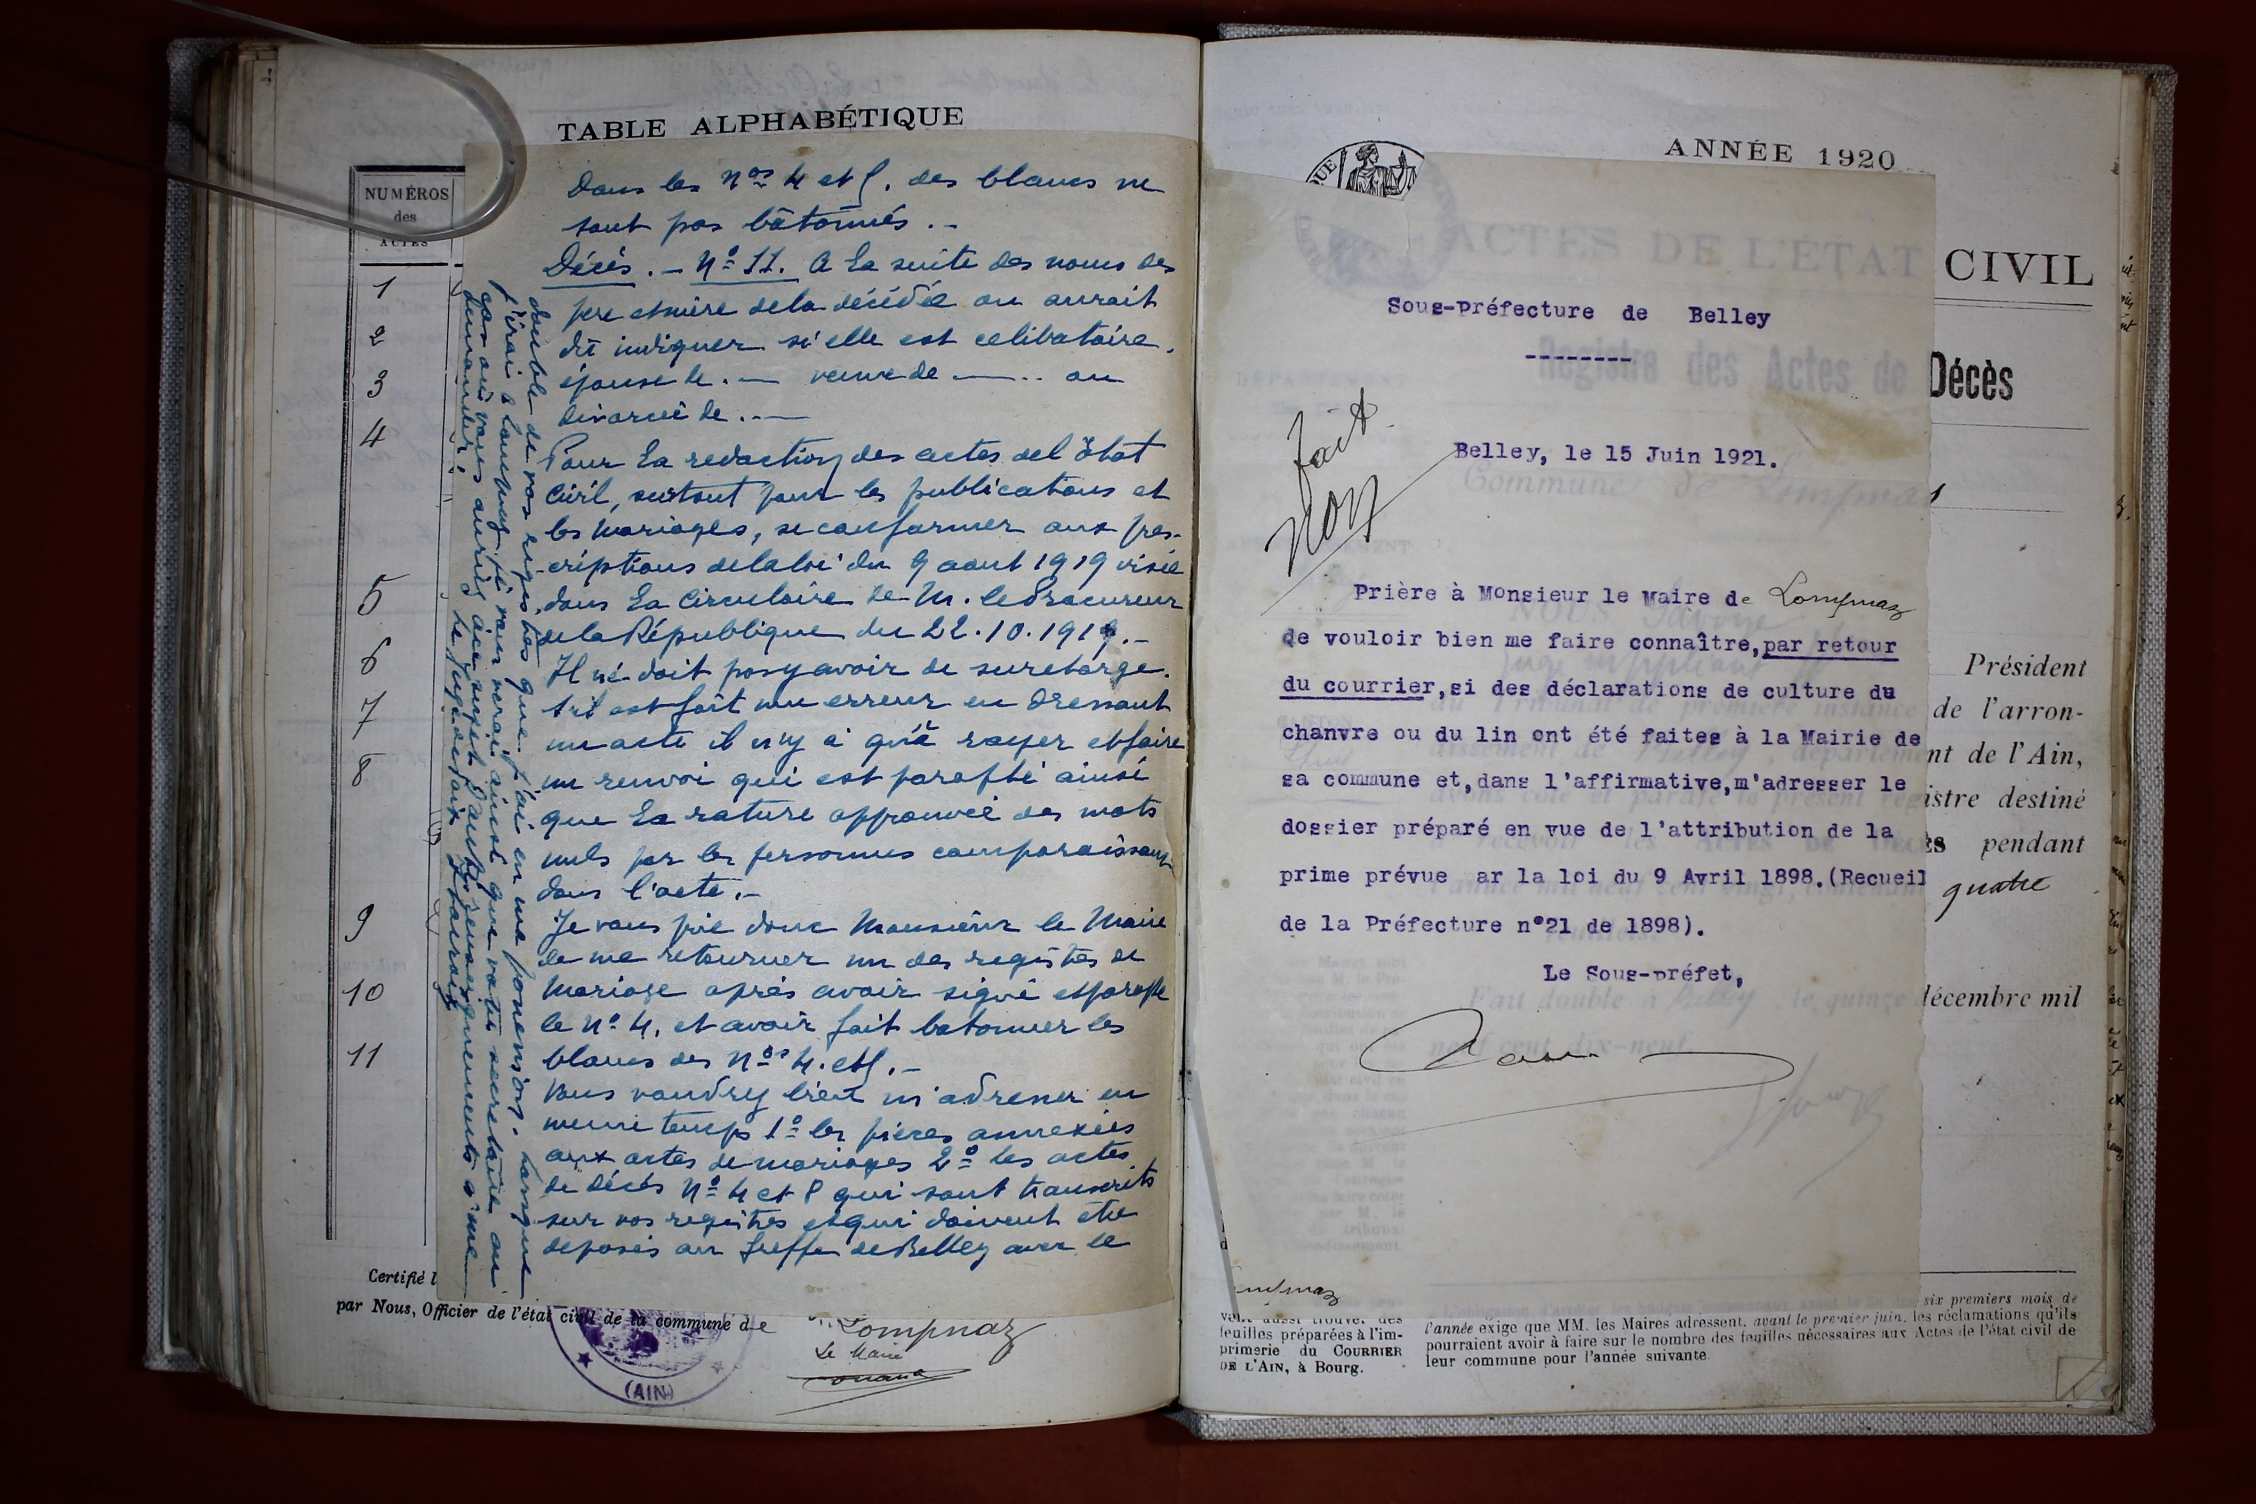 TABLE ALPHABÉTIQUE
NUMÉROS
des
ACTES
1
2
3
4
5
6
7
8
9
10
11
Dans les Nos 4 et 8. des blancs ne
sont pas bâtonnés. -
Décès. - No 11. A la suite des noms des
père et mère de la décédée on aurait
dû indiquer si elle est celibataire,
épouse de . — veuve de — .. ou
divorcée de . . —
Pour la redaction des actes de l'Etat
Civil, surtout pour les publications et
les mariages, se conformer aux pres-
criptions de la loi du 9 aout 1919 visée
dans la Circulaire de M. le Procureur
de la République du 22.10.1919. -
Il ne doit pas y avoir de surcharge.
s'il est fait une erreur en dressant
un acte il n'y a qu'à rayer et faire
un renvoi qui est parafé ainsi
que la rature approuvée des mots
nuls par les personnes comparaissant
dans l'acte. -
Je vous prie donc Monsieur le Maire
de me retourner un des registres de
Mariage après avoir signé et parafé
le No 4, et avoir fait batonner les
blancs des Nos 4. et 8. -
Vous voudrez bien m'adresser en
meme temps 1o les pièces annexées
aux actes de mariages 2o les actes
de décès No 4 et 8 qui sont transcrits
sur vos registres et qui doivent être
déposés au Greffe de Belley avec le
double de vos registres que j'ai en ma possession. Lorsque
j'irai à Lompnaz je vous verrai ainsi que votre secretaire au
cas où vous auriez à ce sujet d'autres renseignements à me
demander.
Certifié
par Nous, Officier de l'état civil de la commune de
Lompnaz
Le Maire
(AIN)
ANNÉE 1920
ACTES DE L'ÉTAT CIVIL
Registre des Actes de Décès
Sous-Préfecture de Belley
--------
fait
Non
Belley, le 15 Juin 1921.
Prière à Monsieur le Maire de Lompnaz
de vouloir bien me faire connaître,par retour
du courrier,si des déclarations de culture du
chanvre ou du lin ont été faites à la Mairie de
sa commune et,dans l'affirmative,m'adresser le
dossier préparé en vue de l'attribution de la
prime prévue ar la loi du 9 Avril 1898.(Recueil
de la Préfecture n°21 de 1898).
Le Sous-préfet,
Président
de l'arron-
nt de l'Ain,
istre destiné
ès pendant
quatre
décembre mil
feuilles préparées à l'im-
primerie du COURRIER
DE L'AIN, à Bourg.
six premiers mois de
l'année exige que MM. les Maires adressent, avant le premier juin, les réclamations qu'ils
pourraient avoir à faire sur le nombre des feuilles nécessaires aux Actes de l'état civil de
leur commune pour l'année suivante.